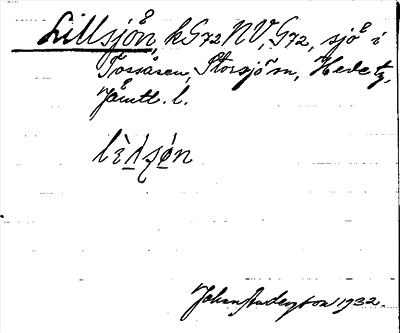 Lillsjön, kG72NV, G72, sjö i
Tossåsen, Storsjö sn, Hede tg,
Jämtl. l.
Johan Anderson 1932.